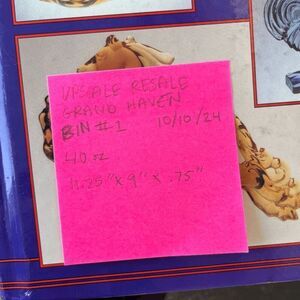 UPSCALE RESALE
GRAND HAVEN
BIN #1 10/10/24
40 oz
11.25" x 9" x .75"